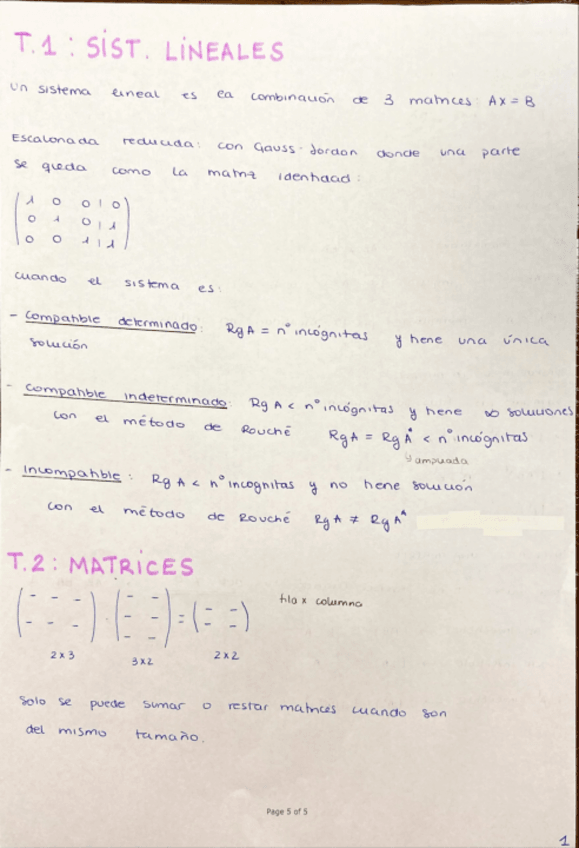 T.1 : SIST. LINEALES
Un sistema lineal es la combinación de 3 matrices: AX = B
Escalonada reducida: con Gauss-Jordan donde una parte
se queda como la matriz identidad:
1 0 0 | 0
0 1 0 | 1
0 0 1 | 1
cuando el sistema es:
- Compatible determinado: Rg A = nº incógnitas y tiene una única
solución
- Compatible indeterminado: Rg A < nº incógnitas y tiene ∞ soluciones
con el método de Rouché Rg A = Rg A* < nº incógnitas
ampliada
- Incompatible: Rg A < nº incognitas y no tiene solución
con el método de Rouché Rg A ≠ Rg A*
T.2 : MATRICES
( - - - ) · ( - - ) = ( - - ) fila x columna
2x3 3x2 2x2
Solo se puede sumar o restar matrices cuando son
del mismo tamaño.
Page 5 of 5
1